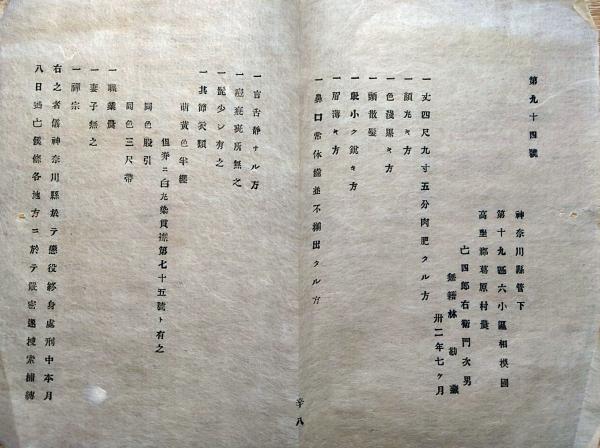 第九十四號
神奈川縣管下
第十九區六小區相模國
高座郡葛原村農
亡四郎右衛門次男
無籍林 幼藏
卅二年七ヶ月
一丈四尺九寸五分肉肥タル方
一顔丸キ方
一色淺黒キ方
一頭散髮
一眼小ク鋭キ方
一眉薄キ方
一鼻口常体齒並不揃出タル方
一言舌靜ナル方
一痘疵斑所無之
一髭少シ有之
一其節衣類
萌黄色半纏
但弄ニ白丸染貫擔第七十五號ト有之
同色股引
同色三尺帶
一職業農
一妻子無之
一禪宗
右之者儀神奈川縣於テ懲役終身處刑中本月
八日逃亡候條各地方ニ於テ嚴密遂捜索捕縛
辛八